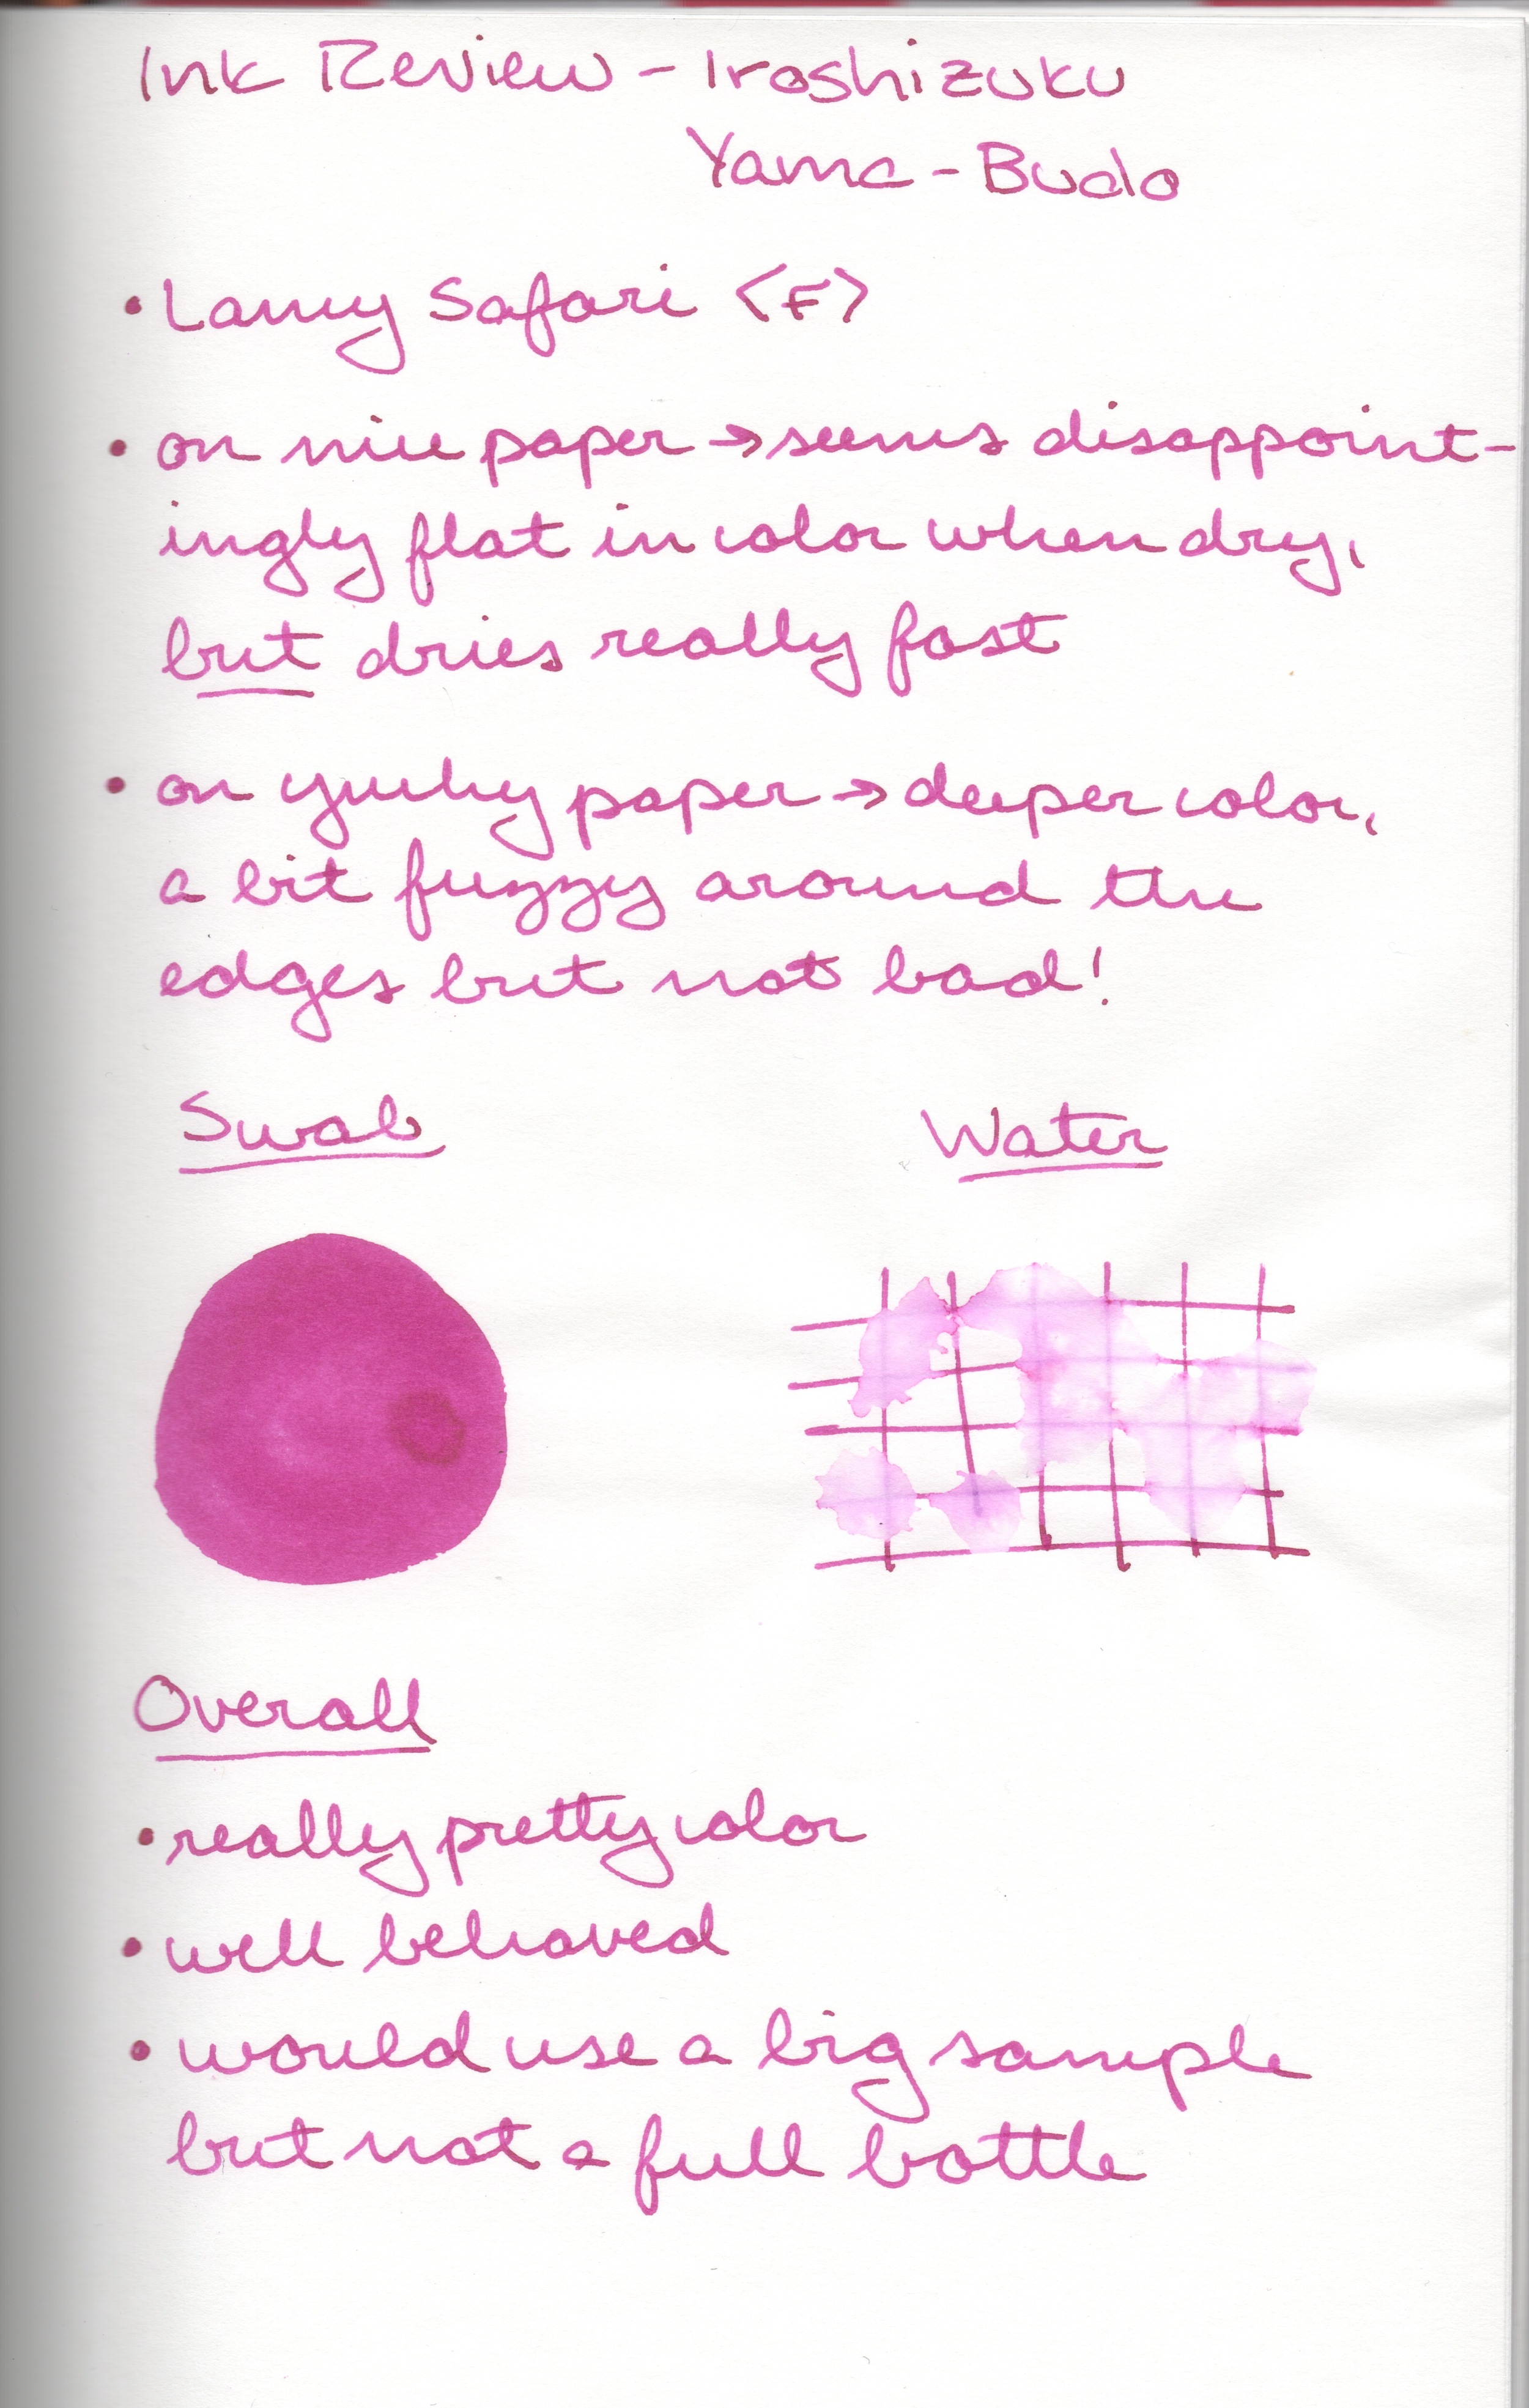 Ink Review - Iroshizuku
Yama-Budo
• Lamy Safari <F>
• on nice paper → seems disappoint-
ingly flat in color when dry,
but dries really fast
• on yucky paper → deeper color,
a bit fuzzy around the
edges but not bad!
Swab Water
Overall
• really pretty color
• well behaved
• would use a big sample
but not a full bottle